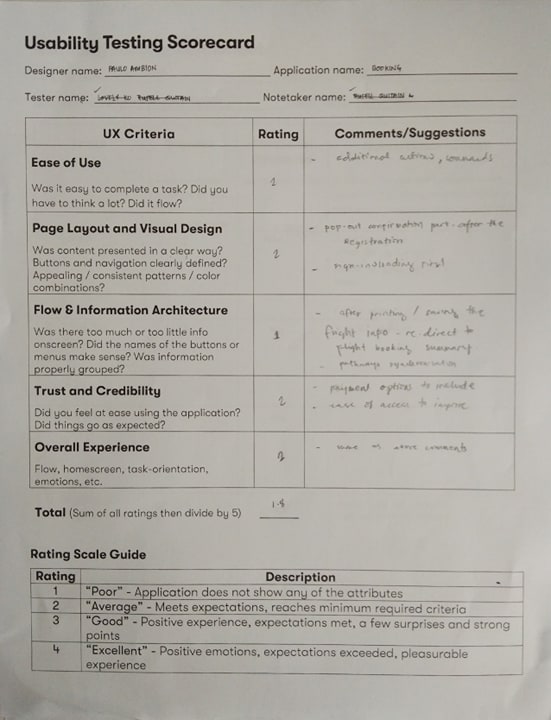 Usability Testing Scorecard
Designer name: PAULO AMBION Application name: BOOKING
Tester name: Notetaker name:
UX Criteria Rating Comments/Suggestions
Ease of Use
Was it easy to complete a task? Did you
have to think a lot? Did it flow?
2
- additional actions,
Page Layout and Visual Design
Was content presented in a clear way?
Buttons and navigation clearly defined?
Appealing / consistent patterns / color
combinations?
2
- pop-out confirmation part - after the
registration
- first
Flow & Information Architecture
Was there too much or too little info
onscreen? Did the names of the buttons or
menus make sense? Was information
properly grouped?
1
- after printing / saving the
flight info - re-direct to
flight booking summary
- pathways
Trust and Credibility
Did you feel at ease using the application?
Did things go as expected?
2
- payment options to include
- ease of access to improve
Overall Experience
Flow, homescreen, task-orientation,
emotions, etc.
2
- same as above comments
Total (Sum of all ratings then divide by 5) 1.8
Rating Scale Guide
Rating Description
1 "Poor" - Application does not show any of the attributes
2 "Average" - Meets expectations, reaches minimum required criteria
3 "Good" - Positive experience, expectations met, a few surprises and strong
points
4 "Excellent" - Positive emotions, expectations exceeded, pleasurable
experience